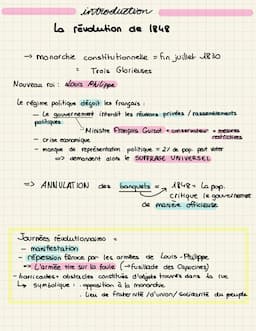 introduction
La révolution de 1848
→ monarchie constitutionnelle = fin juillet 1830
= Trois Glorieuses
Nouveau roi : Louis Philippe
Le régime politique déçoit les français :
- Le gouvernement interdit les réunions privées / rassemblements
politiques
↳ Ministre François Guizot = conservateur = mesures
restrictives
- crise économique
- manque de représentation politique = 2% de pop. peut voter
=> demandent alors le SUFFRAGE UNIVERSEL
=> ANNULATION des banquets = 1848 = La pop.
critique le gouvernement
de manière officieuse
Journées révolutionnaires =
- manifestation
- répression féroce par les armées de Louis-Philippe
=> L'armée tire sur la foule (→ fusillade des Capucines)
- barricades = obstacles constitués d'objets trouvés dans la rue
↳ symbolique : . opposition à la monarchie
. Lieu de fraternité / d'union / solidarité du peuple